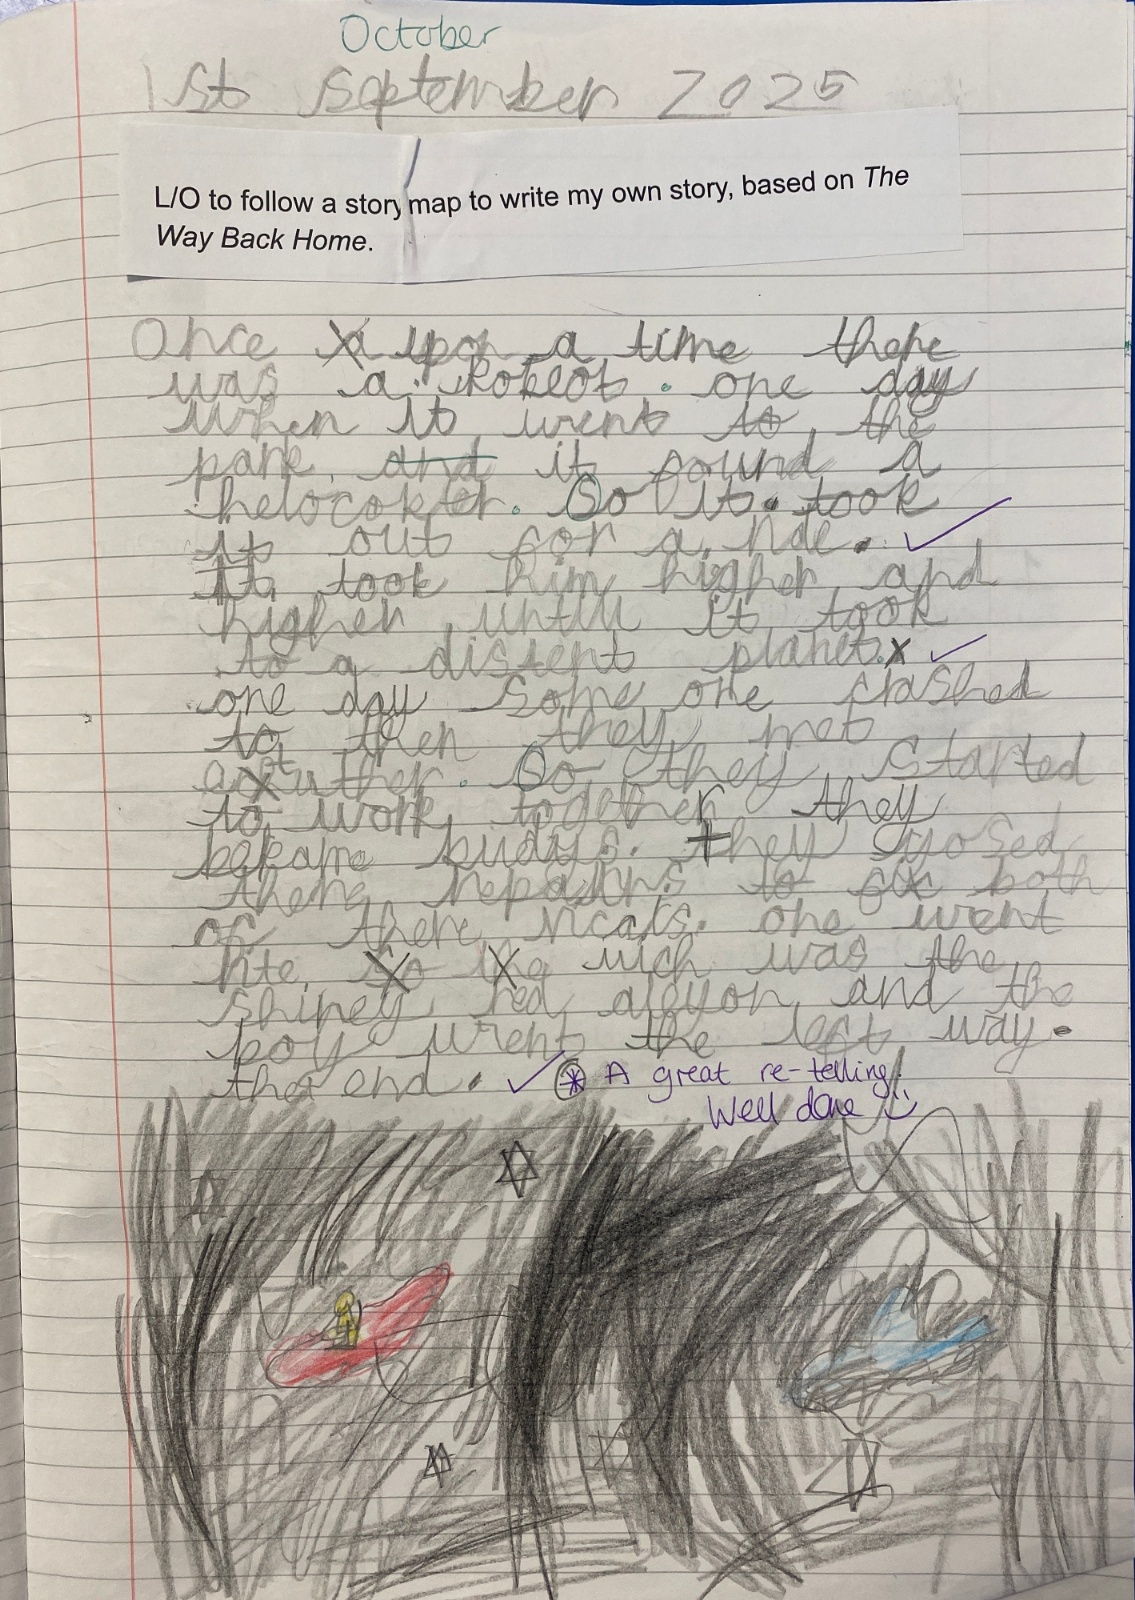 October
1st september 2025
L/O to follow a story map to write my own story, based on The
Way Back Home.
Once a upon a time there
was a rokeot. one day
when it went to the
park and it found a
helocokter. So it took
it out for a ride.
It took him higher and
higher untill it took
to a distent planet.
one day some one crashed
to then they met
So they started
to work together they
bekame budys. they
there to fix both
of there one went
rite so the wich was the
shiney red and the
boy went the left way.
the end.
A great re-telling!
Well done